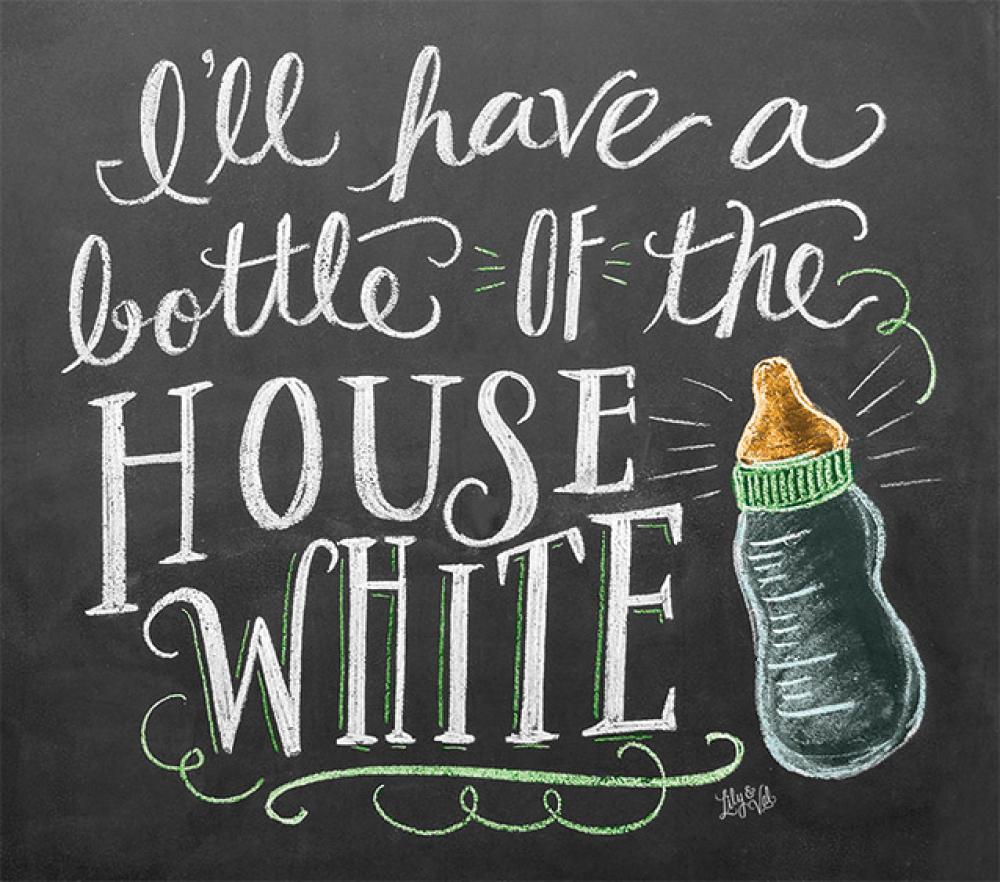 I'll have a
bottle OF the
HOUSE
WHITE
Lily & Val